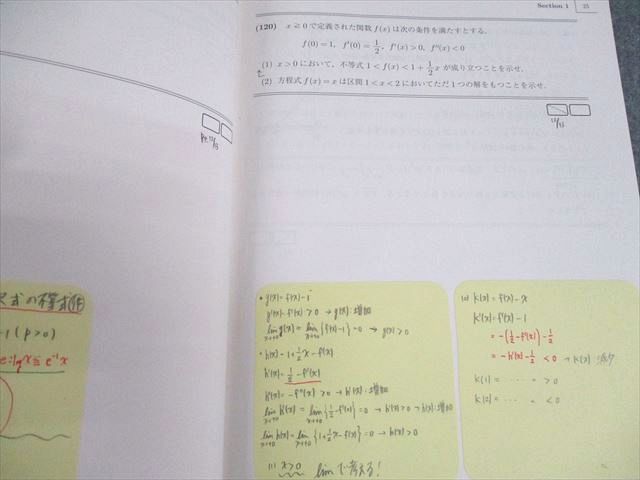 Section 1 25
(120) x ≧ 0 で定義された関数 f(x) は次の条件を満たすとする.
f(0) = 1, f'(0) = 1/2, f'(x) > 0, f''(x) < 0
(1) x > 0 において, 不等式 1 < f(x) < 1 + 1/2 x が成り立つことを示せ.
(2) 方程式 f(x) = x は区間 1 < x < 2 においてただ1つの解をもつことを示せ.
12/13
式の不等式
-1 (p>0)
logx ≦ e⁻¹x
・g(x) = f(x) - 1
g'(x) = f'(x) > 0 → g(x): 増加
lim x→+0 g(x) = lim x→+0 {f(x) - 1} = 0 → g(x) > 0
・h(x) = 1 + 1/2 x - f(x)
h'(x) = 1/2 - f'(x)
h''(x) = -f''(x) > 0 → h'(x): 増加
lim x→+0 h'(x) = lim x→+0 {1/2 - f'(x)} = 0 → h'(x) > 0 → h(x): 増加
lim x→+0 h(x) = lim x→+0 {1 + 1/2 x - f(x)} = 0 → h(x) > 0
!!! x > 0 limで考える!
(2) k(x) = f(x) - x
k'(x) = f'(x) - 1
= -(1/2 - f'(x)) - 1/2
= -h'(x) - 1/2 < 0 → k(x): 減少
k(1) = ‥‥ > 0
k(2) = ‥‥ < 0